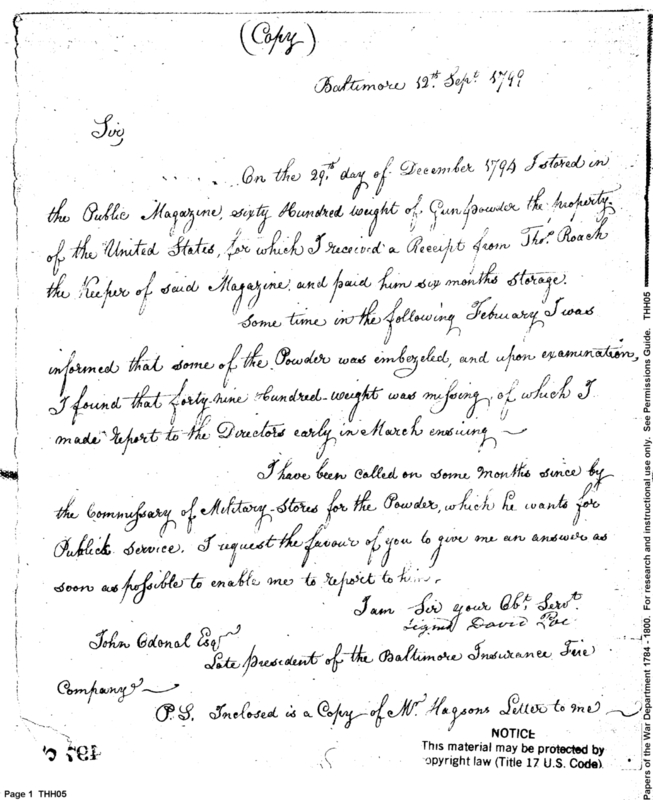 (Copy)
Baltimore 12th. Sept. 1799
Sir,
On the 29th. day of December 1794 I stored in
the Public Magazine, sixty Hundred weight of Gunpowder the property
of the United States, for which I received a Receipt from Thos. Roach
the Keeper of said Magazine, and paid him six months storage.
Some time in the following February I was
informed that some of the Powder was embezeled, and upon examination,
I found that forty-nine Hundred-weight was missing, of which I
made report to the Directors early in March ensuing
I have been called on some months since by
the Commissary of Military-Stores for the Powder, which he wants for
Publick service. I request the favour of you to give me an answer as
soon as possible to enable me to report to him.
I am Sir your Obt. Servt.
Signed David Poe
John Odonal Esqr
Late president of the Baltimore Insurance Fire
Company
P.S. Inclosed is a Copy of Mr. Hagsons Letter to me
NOTICE
This material may be protected by
copyright law (Title 17 U.S. Code)
Page 1 THH05
Papers of the War Department 1784 - 1800. For research and instructional use only. See Permissions Guide. THH05